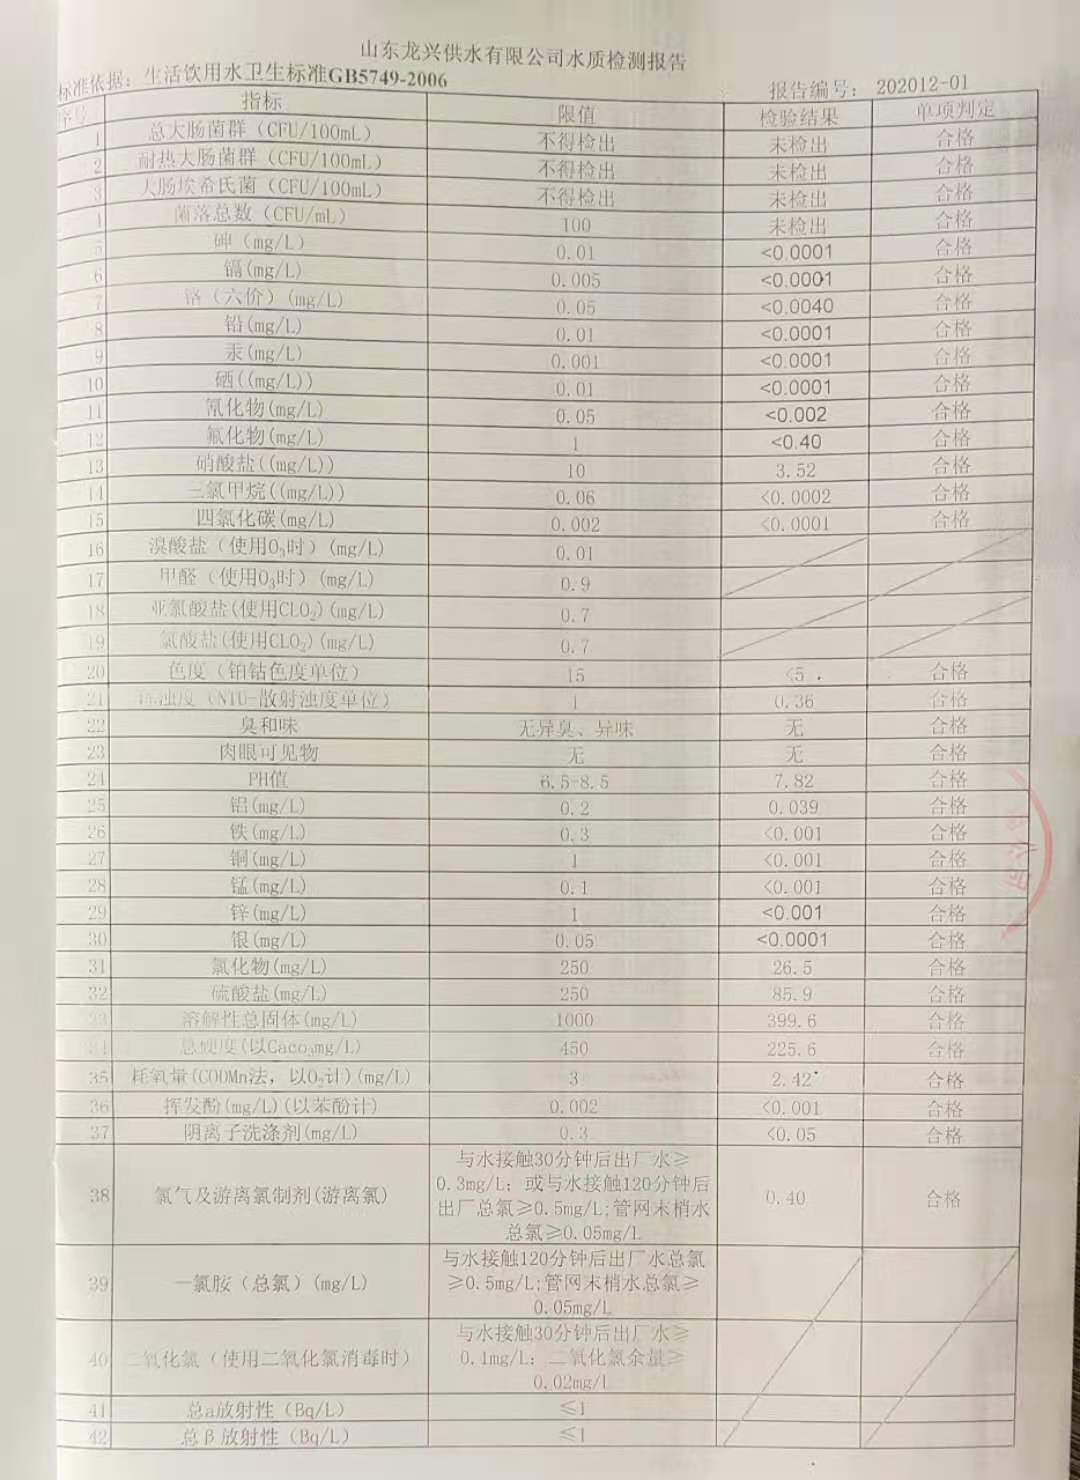 山东龙兴供水有限公司水质检测报告
标准依据：生活饮用水卫生标准GB5749-2006 报告编号： 202012-01
序号 指标 限值 检验结果 单项判定
1 总大肠菌群（CFU/100mL） 不得检出 未检出 合格
2 耐热大肠菌群（CFU/100mL） 不得检出 未检出 合格
3 大肠埃希氏菌（CFU/100mL） 不得检出 未检出 合格
4 菌落总数（CFU/mL） 100 未检出 合格
5 砷（mg/L） 0.01 <0.0001 合格
6 镉(mg/L) 0.005 <0.0001 合格
7 铬（六价）(mg/L) 0.05 <0.0040 合格
8 铅(mg/L) 0.01 <0.0001 合格
9 汞(mg/L) 0.001 <0.0001 合格
10 硒((mg/L)) 0.01 <0.0001 合格
11 氰化物(mg/L) 0.05 <0.002 合格
12 氟化物(mg/L) 1 <0.40 合格
13 硝酸盐((mg/L)) 10 3.52 合格
14 三氯甲烷((mg/L)) 0.06 <0.0002 合格
15 四氯化碳(mg/L) 0.002 <0.0001 合格
16 溴酸盐（使用O3时）(mg/L) 0.01
17 甲醛（使用O3时）(mg/L) 0.9
18 亚氯酸盐(使用CLO2)(mg/L) 0.7
19 氯酸盐(使用CLO2)(mg/L) 0.7
20 色度（铂钴色度单位） 15 <5 合格
21 浊度（NTU-散射浊度单位） 1 0.36 合格
22 臭和味 无异臭、异味 无 合格
23 肉眼可见物 无 无 合格
24 PH值 6.5-8.5 7.82 合格
25 铝(mg/L) 0.2 0.039 合格
26 铁(mg/L) 0.3 <0.001 合格
27 铜(mg/L) 1 <0.001 合格
28 锰(mg/L) 0.1 <0.001 合格
29 锌(mg/L) 1 <0.001 合格
30 银(mg/L) 0.05 <0.0001 合格
31 氯化物(mg/L) 250 26.5 合格
32 硫酸盐(mg/L) 250 85.9 合格
33 溶解性总固体(mg/L) 1000 399.6 合格
34 总硬度(以Caco3mg/L) 450 225.6 合格
35 耗氧量(CODMn法，以O2计)(mg/L) 3 2.42 合格
36 挥发酚(mg/L)(以苯酚计) 0.002 <0.001 合格
37 阴离子洗涤剂(mg/L) 0.3 <0.05 合格
38 氯气及游离氯制剂(游离氯) 与水接触30分钟后出厂水≥
0.3mg/L；或与水接触120分钟后
出厂总氯≥0.5mg/L;管网末梢水
总氯≥0.05mg/L 0.40 合格
39 一氯胺（总氯）(mg/L) 与水接触120分钟后出厂水总氯
≥0.5mg/L;管网末梢水总氯≥
0.05mg/L
40 二氧化氯（使用二氧化氯消毒时） 与水接触30分钟后出厂水≥
0.1mg/L；二氧化氯余量≥
0.02mg/L
41 总a放射性（Bq/L） ≤1
42 总β放射性（Bq/L） ≤1